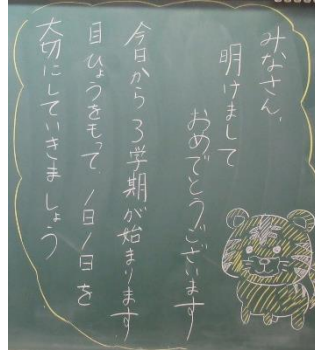 みなさん、
明けまして
おめでとうございます
今日から3学期が始まります
目ひょうをもって、1日1日を
大切にしていきましょう